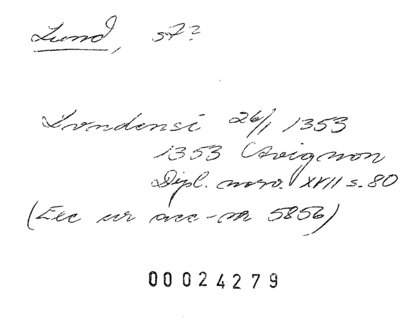 Lund, st?
Lundensi 26/1 1353
1353 Avignon
Dipl. norv. XVII s. 80
(Exc ur acc-nr 5856)
00024279